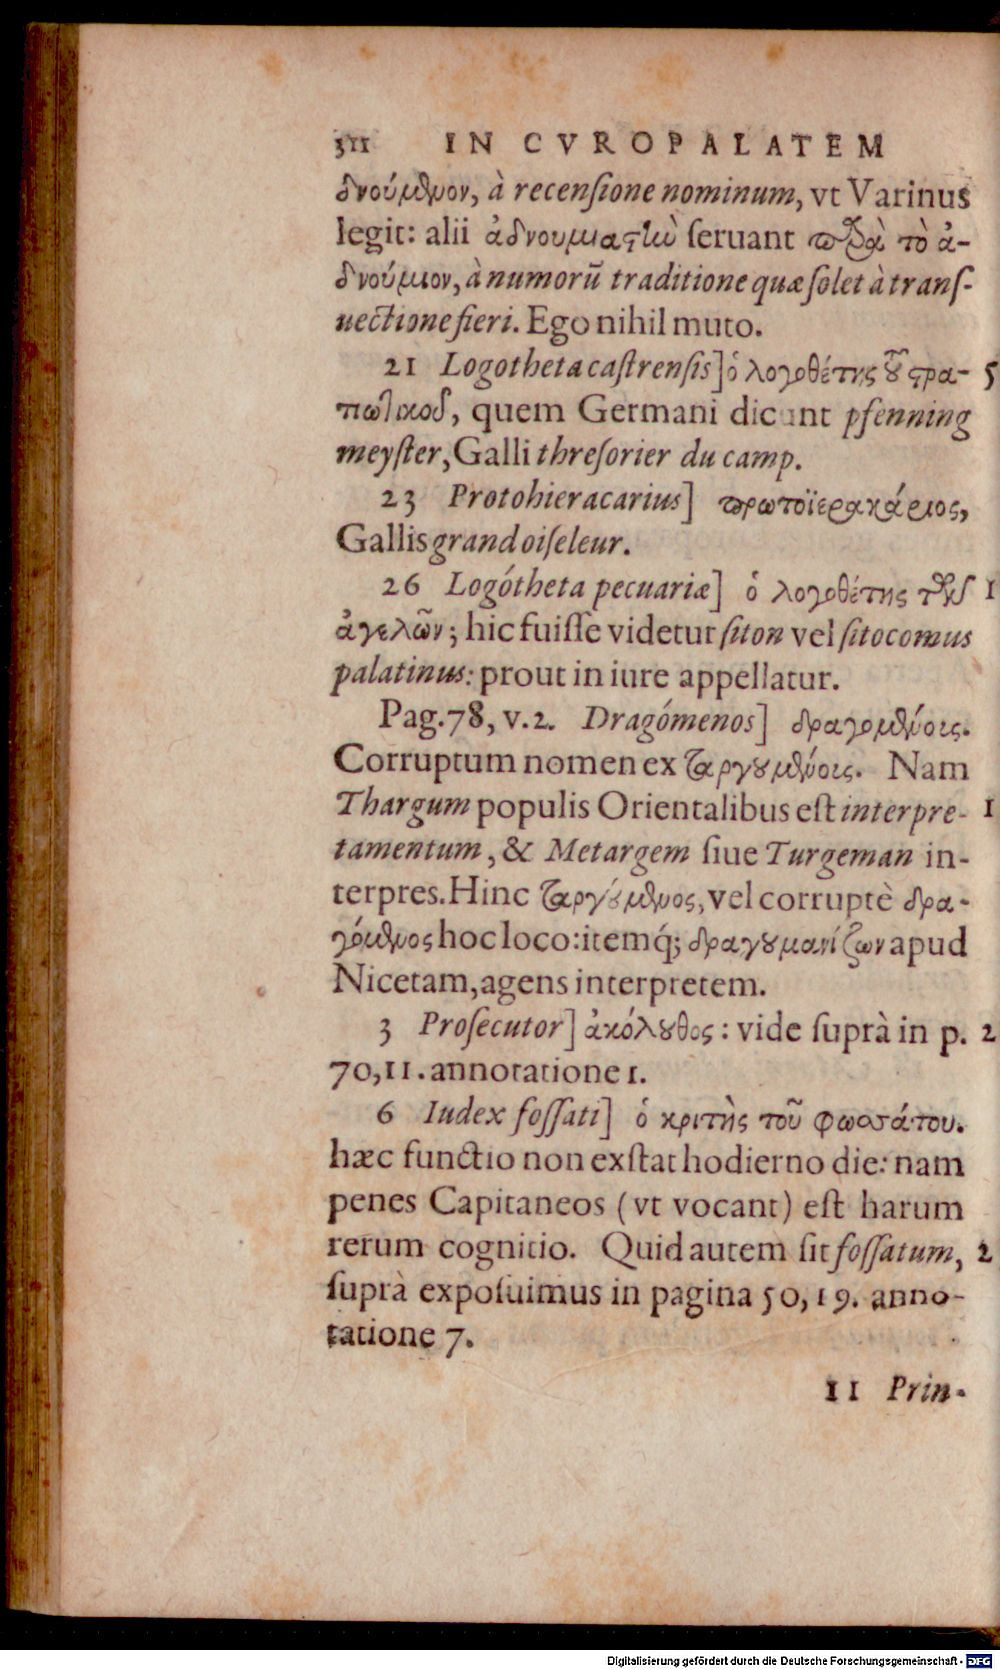 311 IN CVROPALATEM
δνούμενον, à recenſione nominum, vt Varinus
legit: alii ἀδνουμιαστὴν ſeruant παρὰ τὸ ἀ-
δνούμιον, à numorū traditione quæ ſolet à transſ-
uectione fieri. Ego nihil muto.
21 Logotheta caſtrenſis] ὁ λογοθέτης τοῦ στρα- 5
τιωτικοῦ, quem Germani dicunt pfenning
meyſter, Galli threſorier du camp.
23 Protohieracarius] πρωτοϊερακάριος,
Gallis grand oiſeleur.
26 Logótheta pecuariæ] ὁ λογοθέτης τῶν 1
ἀγελῶν; hic fuiſſe videtur ſiton vel ſitocomus
palatinus: prout in iure appellatur.
Pag. 78, v. 2. Dragómenos] δραγομένοις.
Corruptum nomen ex ταργουμένοις. Nam
Thargum populis Orientalibus eſt interpre- 1
tamentum, & Metargem ſiue Turgeman in-
terpres. Hinc ταργούμενος, vel corruptè δρα-
γόμενος hoc loco: itemq́; δραγουμανίζων apud
Nicetam, agens interpretem.
3 Proſecutor] ἀκόλουθος: vide ſuprà in p. 2
70, 11. annotatione 1.
6 Iudex foſſati] ὁ κριτὴς τοῦ φωσάτου.
hæc functio non exſtat hodierno die: nam
penes Capitaneos (vt vocant) eſt harum
rerum cognitio. Quid autem ſit foſſatum, 2
ſuprà expoſuimus in pagina 50, 19. anno-
tatione 7.
11 Prin-
Digitalisierung gefördert durch die Deutsche Forschungsgemeinschaft - DFG